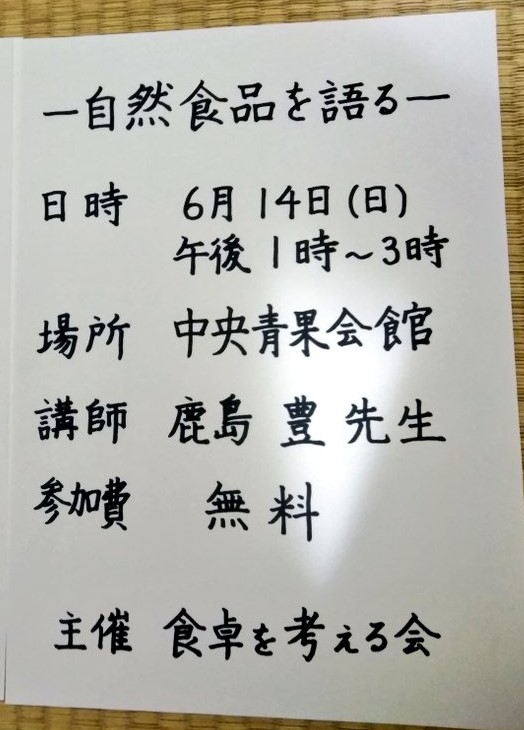 —自然食品を語る—
日時 6月14日(日)
午後1時～3時
場所 中央青果会館
講師 鹿島 豊 先生
参加費 無料
主催 食卓を考える会